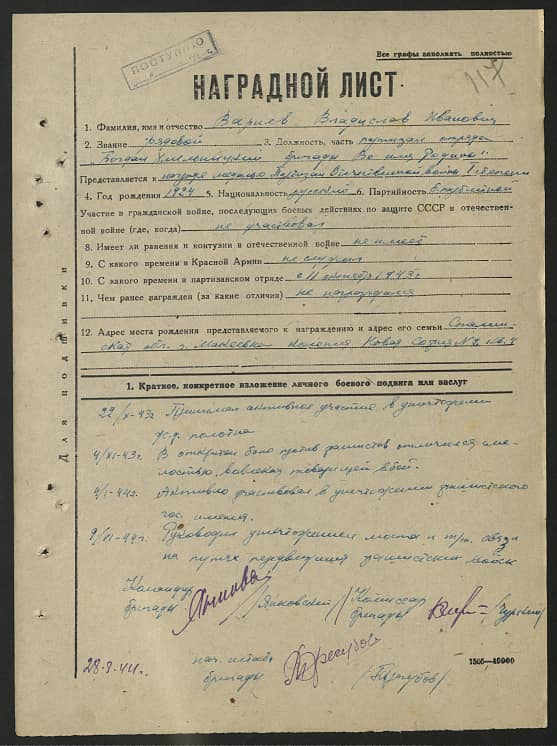 ПОСТУПИЛО
Все графы заполнять полностью
117
НАГРАДНОЙ ЛИСТ
1. Фамилия, имя и отчество Вариев Владислав Иванович
2. Звание Рядовой 3. Должность, часть партизан отряда
"Богдан Хмельницкий" бригады "Во имя Родины"
Представляется к награде медаль Партизан Отечественной войны I степени
4. Год рождения 1924 5. Национальность русский 6. Партийность Беспартийный
Участие в гражданской войне, последующих боевых действиях по защите СССР и отечествен-
ной войне (где, когда) не участвовал
8. Имеет ли ранения и контузии в отечественной войне не имеет
9. С какого времени в Красной Армии не служил
10. С какого времени в партизанском отряде с 11 октября 1943г
11. Чем ранее награжден (за какие отличия) не награждался
12. Адрес места рождения представляемого к награждению и адрес его семьи Сталин-
ская обл. г. Макеевка колония Новая София №
Для подшивки
1. Краткое, конкретное изложение личного боевого подвига или заслуг
22/X-43г. Принимал активное участие в уничтожении
ж.д. полотна
4/XI-43г. В открытом бою против фашистов отличился сме-
лостью, вовлекая товарищей в бой.
Активно участвовал в уничтожении фашистского
гос. имения.
Руководил уничтожением моста и т/т. связи
на путях передвижения фашистских войск
Командир
бригады /Янковский/
Комиссар
бригады
28-9-44г.
нач. штаба
бригады
1505—40000